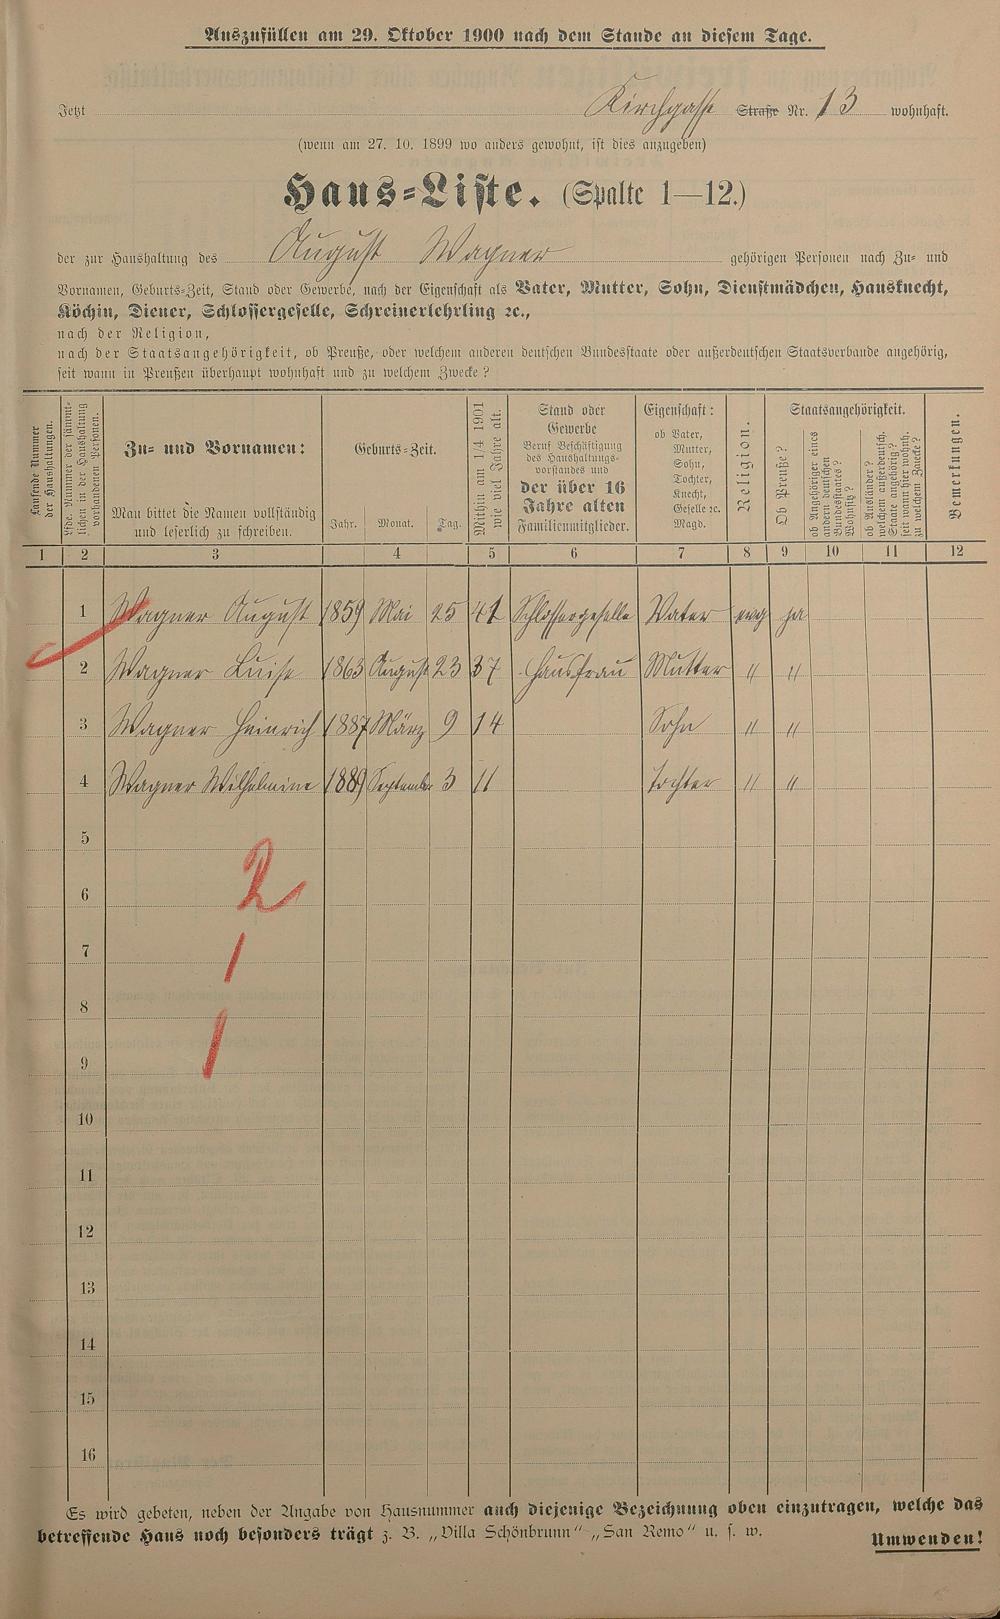 Auszufüllen am 29. Oktober 1900 nach dem Stande an diesem Tage.
Jetzt Kirchgasse Straße Nr. 13 wohnhaft.
(wenn am 27. 10. 1899 wo anders gewohnt, ist dies anzugeben)
Haus-Liste. (Spalte 1—12.)
der zur Haushaltung des August Wagner gehörigen Personen nach Zu- und
Vornamen, Geburts-Zeit, Stand oder Gewerbe, nach der Eigenschaft als Vater, Mutter, Sohn, Dienstmädchen, Hausknecht,
Köchin, Diener, Schlossergeselle, Schreinerlehrling ꝛc.,
nach der Religion,
nach der Staatsangehörigkeit, ob Preuße, oder welchem anderen deutschen Bundesstaate oder außerdeutschen Staatsverbande angehörig,
seit wann in Preußen überhaupt wohnhaft und zu welchem Zwecke?
Laufende Nummer
der Haushaltungen.
Lfde. Nummer der sämmt-
lichen in der Haushaltung
vorhandenen Personen.
Zu- und Vornamen:
Man bittet die Namen vollständig
und leserlich zu schreiben.
Geburts-Zeit.
Jahr. Monat. Tag.
Mithin am 1/4 1901
wie viel Jahre alt.
Stand oder
Gewerbe
Beruf Beschäftigung
des Haushaltungs-
vorstandes und
der über 16
Jahre alten
Familienmitglieder.
Eigenschaft:
ob Vater,
Mutter,
Sohn,
Tochter,
Knecht,
Geselle ꝛc.
Magd.
Religion.
Staatsangehörigkeit.
Ob Preuße?
ob Angehöriger eines
andern deutschen
Bundesstaates?
Wohnsitz?
ob Ausländer?
welchem außerdeutsch.
Staate angehörig?
seit wann hier wohnh.
zu welchem Zwecke?
Bemerkungen.
1 2 3 4 5 6 7 8 9 10 11 12
1 Wagner August 1859 Mai 25 41 Schlossergeselle Vater evg ja
2 Wagner Luise 1863 August 23 37 Hausfrau Mutter " "
3 Wagner Heinrich 1887 März 9 14 Sohn " "
4 Wagner Wilhelmine 1889 September 3 11 Tochter " "
5
6
7
8
9
10
11
12
13
14
15
16
2
1
1
Es wird gebeten, neben der Angabe von Hausnummer auch diejenige Bezeichnung oben einzutragen, welche das
betreffende Haus noch besonders trägt z. B. „Villa Schönbrunn" „San Remo" u. s. w.
Umwenden!